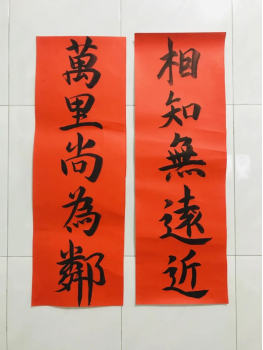 相知無遠近
萬里尚為鄰